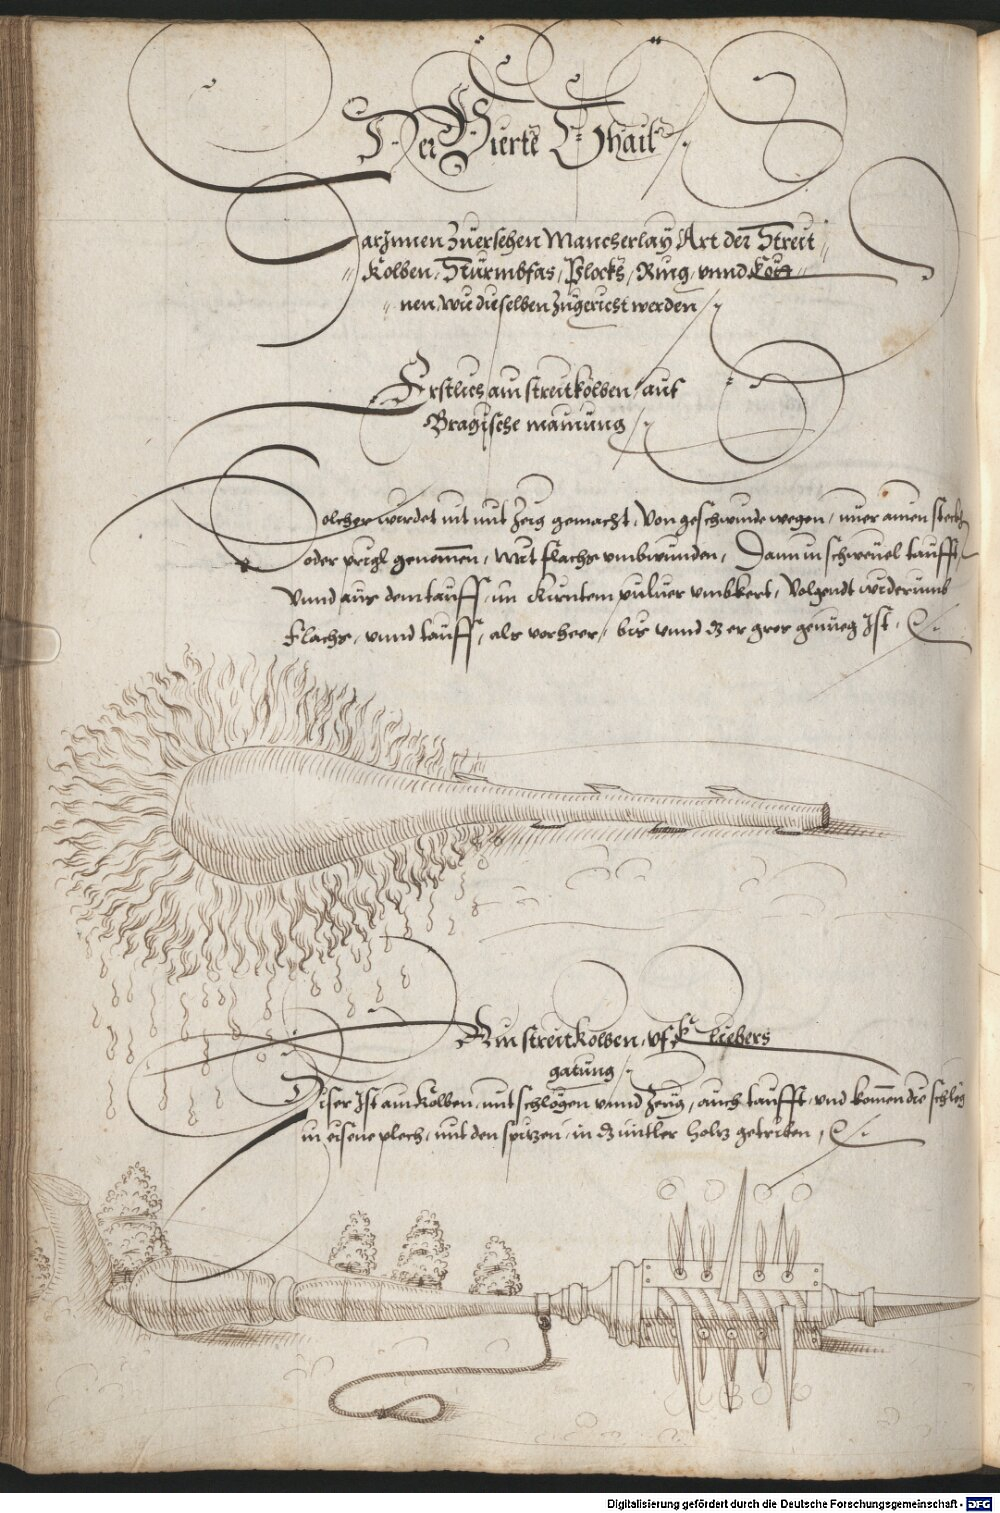 Der Vierte Thail
Darjnnen Zuersehen Mancherlay Art der Streit
Kolben, Sturmbfas, Plockh, Ring, vnnd Kött
nen, wie dieselben Zugericht werden
Erstlich ain streitkolben, auf
Bragische maniung
Solcher würdet nit mit Zeig gemacht, Von geschwinde wegen, nuer ainen steckh
oder prigl genomen, Mit flachs vmbwunden, Dann in schweuel taufft,
Vnnd aus dem tauff, in Kirntem puluer vmbkert, Volgendt widerumb
flachs, vnnd tauff, als vorheer, bis vnnd dz er gros genueg Ist,
Ain streitkolben, vf liebers
gatung
Diser Ist ain Kolben, mit schlögen vnnd Zeug, auch taufft, vnd komen die schleg
in eisene plech, mit den spitzen, in dz mitler holtz getriben,
Digitalisierung gefördert durch die Deutsche Forschungsgemeinschaft - DFG